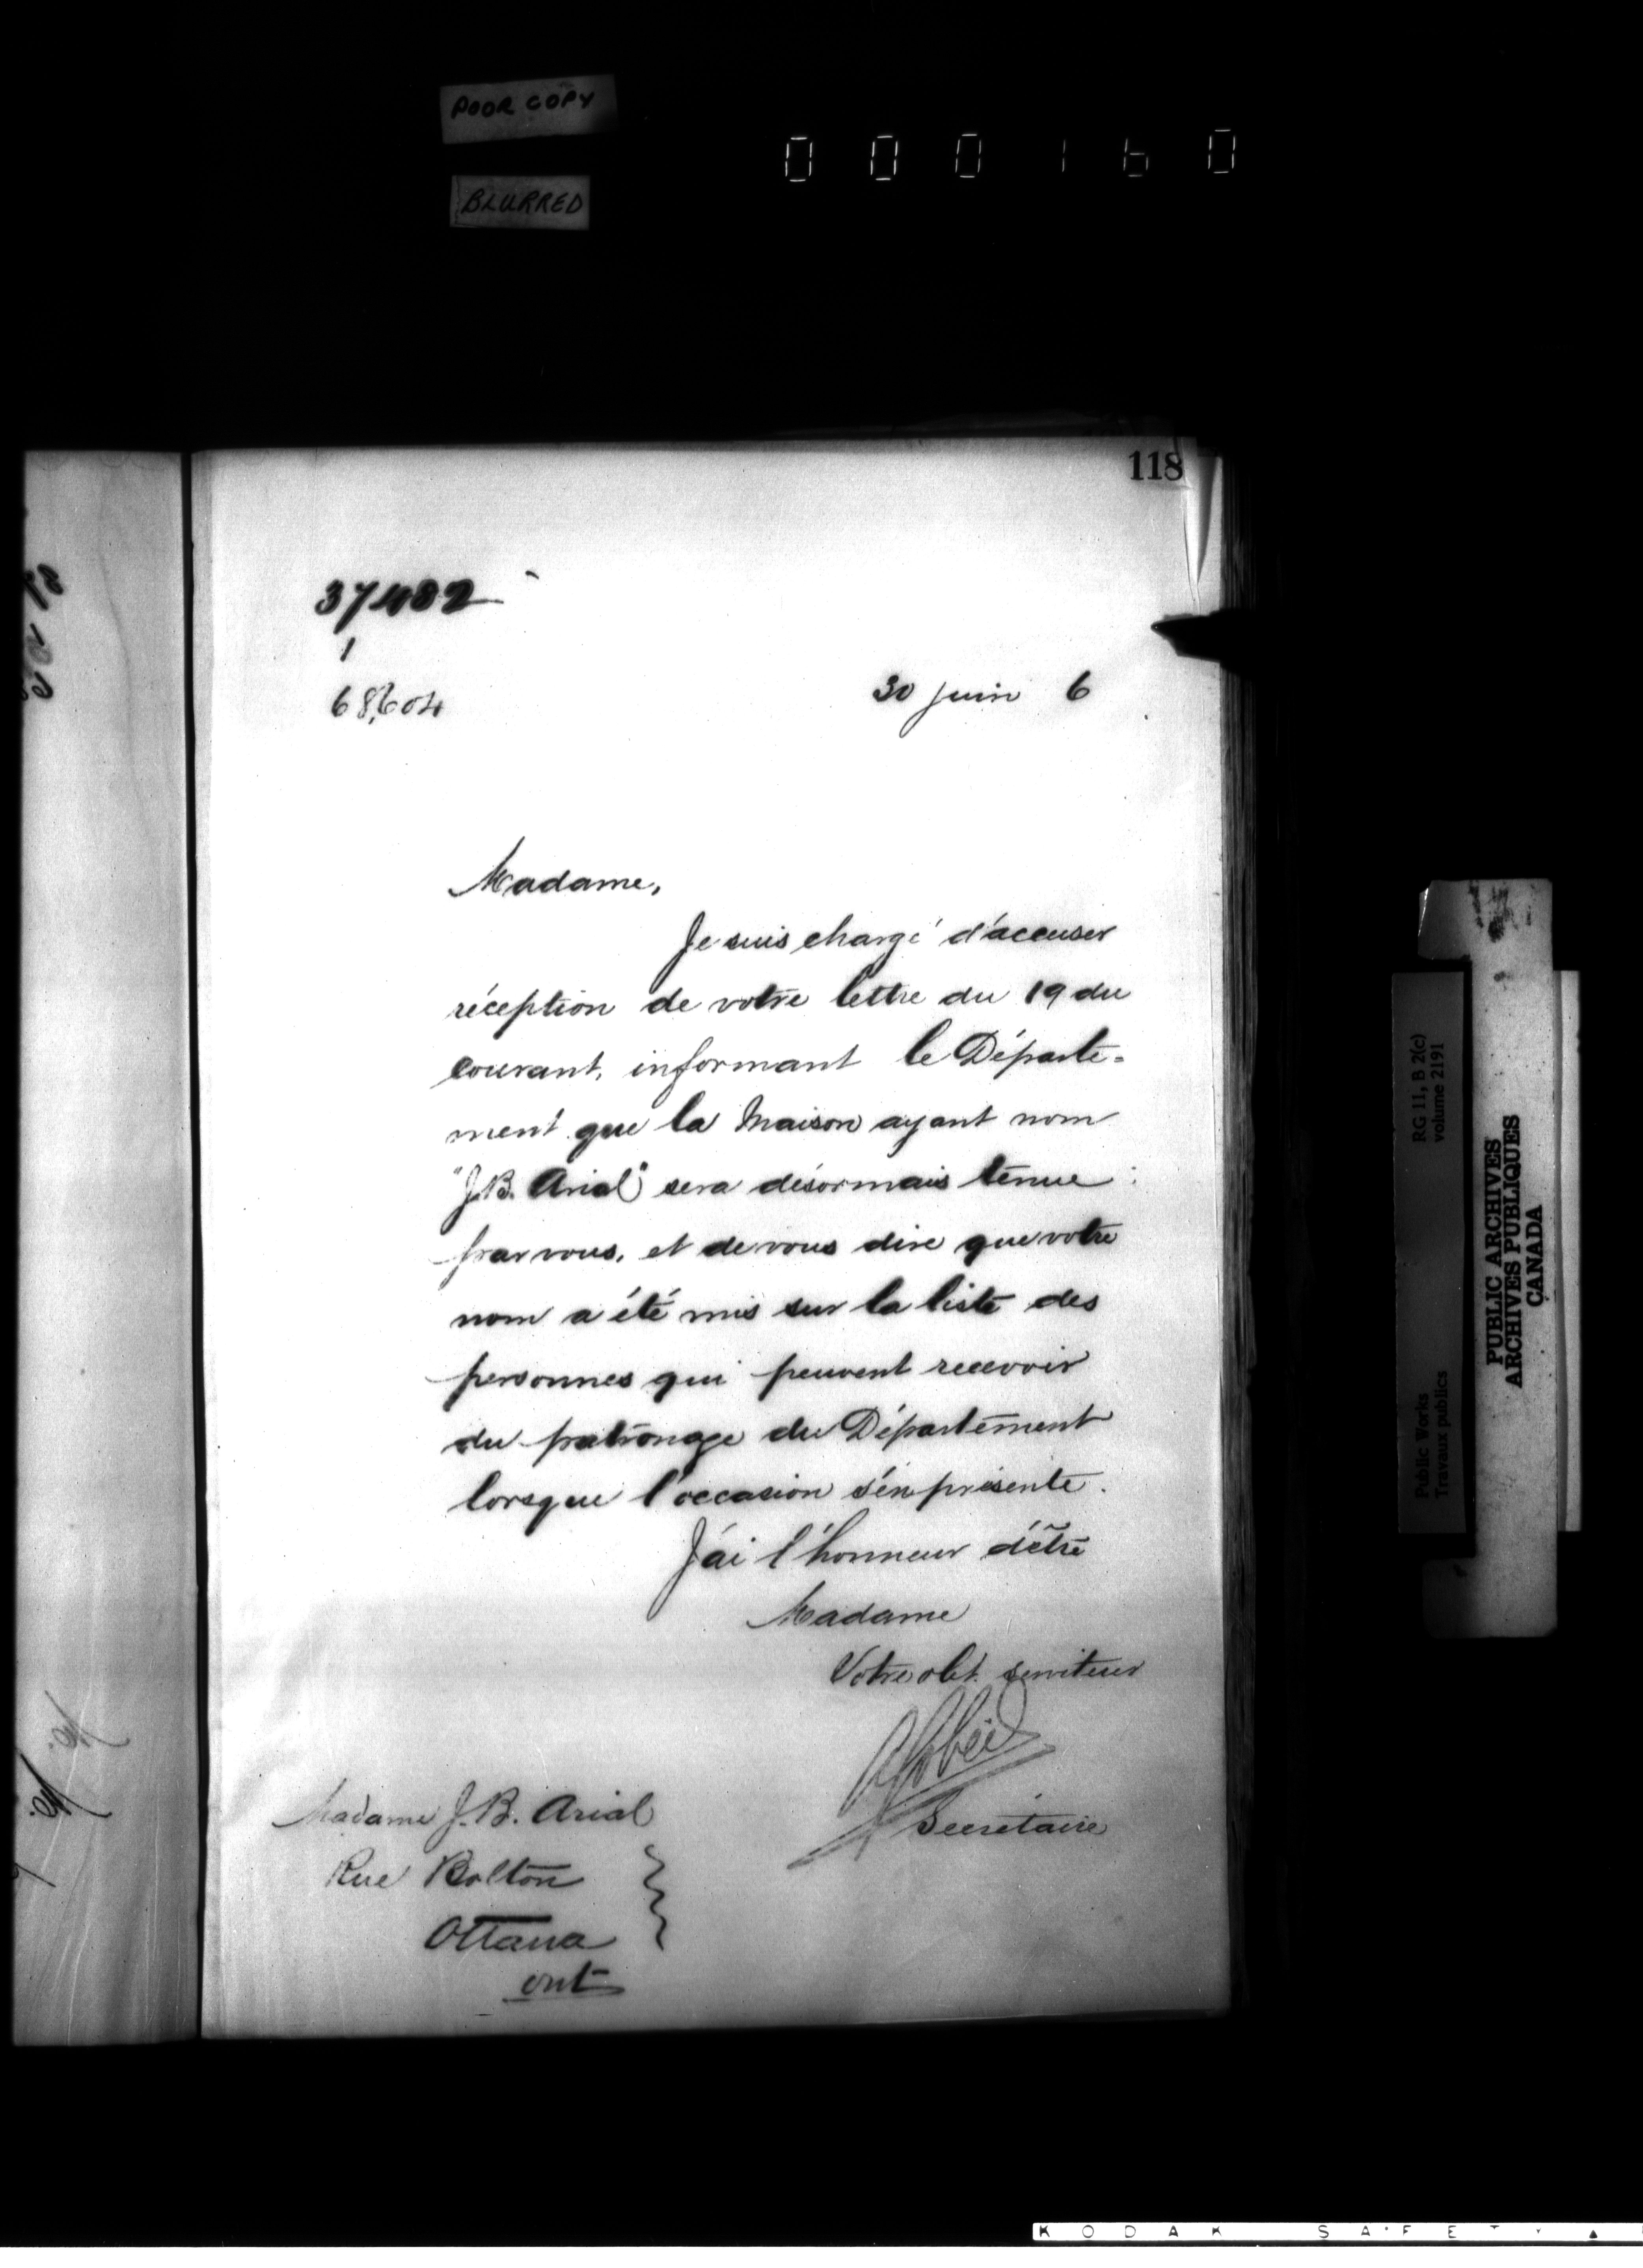 POOR COPY
BLURRED
000160
118
37482
1
68,604
30 juin 6
Madame,
Je suis chargé d'accuser
réception de votre lettre du 19 du
courant, informant le Départe=
ment que la Maison ayant nom
"J.B. Arial" sera désormais tenue
par vous, et de vous dire que votre
nom a été mis sur la liste des
personnes qui peuvent recevoir
du patronage du Département
lorsque l'occasion s'en présente.
J'ai l'honneur d'être
Madame
Votre obt. serviteur
Secrétaire
Madame J.B. Arial
Rue Bolton
Ottawa
Ont
RG 11, B 2(c)
volume 2191
Public Works
Travaux publics
PUBLIC ARCHIVES
ARCHIVES PUBLIQUES
CANADA
KODAK SAFETY